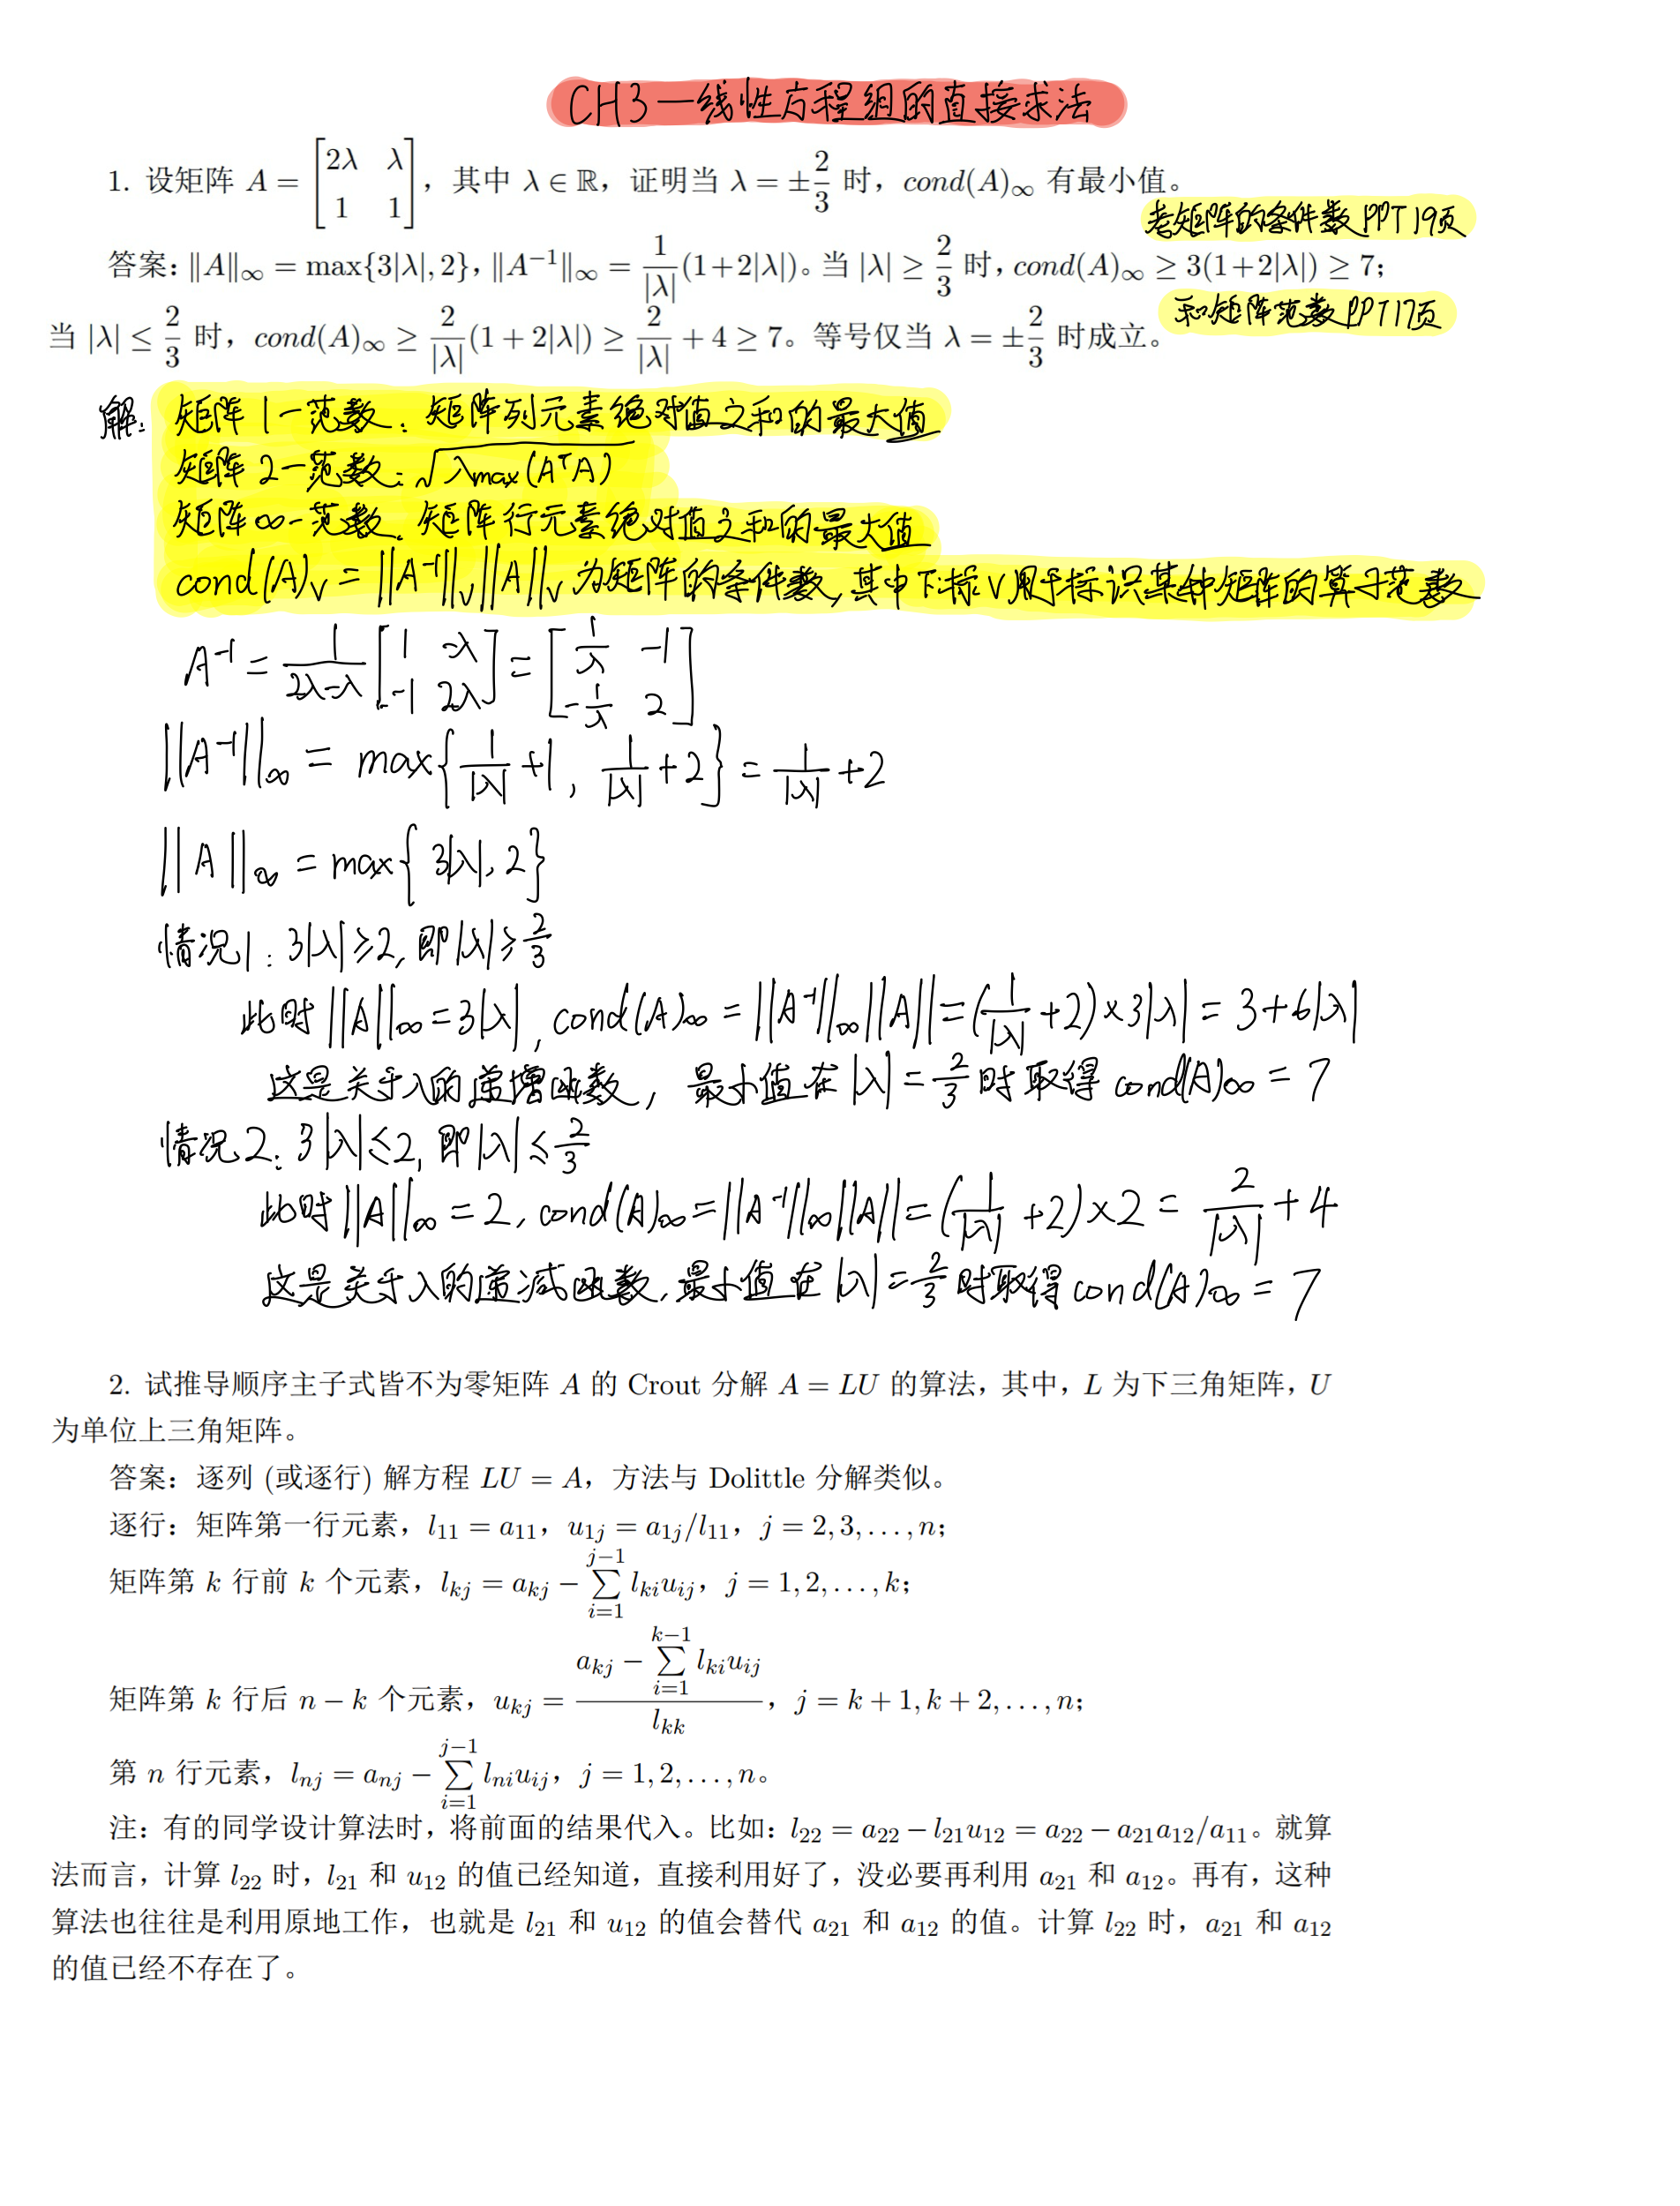 CH3一线性方程组的直接求法
1. 设矩阵 $A = \begin{bmatrix} 2\lambda & \lambda \\ 1 & 1 \end{bmatrix}$，其中 $\lambda \in \mathbb{R}$，证明当 $\lambda = \pm\frac{2}{3}$ 时，$cond(A)_\infty$ 有最小值。
考矩阵的条件数PPT19页
答案：$\|A\|_\infty = \max\{3|\lambda|, 2\}$，$\|A^{-1}\|_\infty = \frac{1}{|\lambda|}(1+2|\lambda|)$。当 $|\lambda| \geq \frac{2}{3}$ 时，$cond(A)_\infty \geq 3(1+2|\lambda|) \geq 7$；
和矩阵范数PPT17页
当 $|\lambda| \leq \frac{2}{3}$ 时，$cond(A)_\infty \geq \frac{2}{|\lambda|}(1+2|\lambda|) \geq \frac{2}{|\lambda|} + 4 \geq 7$。等号仅当 $\lambda = \pm\frac{2}{3}$ 时成立。
解：矩阵1一范数：矩阵列元素绝对值之和的最大值
矩阵2一范数：$\sqrt{\lambda_{max}(A^TA)}$
矩阵∞一范数：矩阵行元素绝对值之和的最大值
$cond(A)_v = \|A^{-1}\|_v\|A\|_v$ 为矩阵的条件数,其中下标V用于标识某种矩阵的算子范数
$A^{-1} = \frac{1}{2\lambda-\lambda}\begin{bmatrix} 1 & -\lambda \\ -1 & 2\lambda \end{bmatrix} = \begin{bmatrix} \frac{1}{\lambda} & -1 \\ -\frac{1}{\lambda} & 2 \end{bmatrix}$
$\|A^{-1}\|_\infty = max\{\frac{1}{|\lambda|}+1, \frac{1}{|\lambda|}+2\} = \frac{1}{|\lambda|}+2$
$\|A\|_\infty = max\{3|\lambda|, 2\}$
情况1：$3|\lambda| \geq 2$, 即 $|\lambda| \geq \frac{2}{3}$
此时 $\|A\|_\infty = 3|\lambda|$, $cond(A)_\infty = \|A^{-1}\|_\infty\|A\| = (\frac{1}{|\lambda|}+2)\times 3|\lambda| = 3+6|\lambda|$
这是关于λ的递增函数, 最小值在 $|\lambda| = \frac{2}{3}$ 时取得 $cond(A)_\infty = 7$
情况2：$3|\lambda| \leq 2$, 即 $|\lambda| \leq \frac{2}{3}$
此时 $\|A\|_\infty = 2$, $cond(A)_\infty = \|A^{-1}\|_\infty\|A\| = (\frac{1}{|\lambda|}+2)\times 2 = \frac{2}{|\lambda|}+4$
这是关于λ的递减函数,最小值在 $|\lambda| = \frac{2}{3}$ 时取得 $cond(A)_\infty = 7$
2. 试推导顺序主子式皆不为零矩阵 $A$ 的 Crout 分解 $A = LU$ 的算法，其中，$L$ 为下三角矩阵，$U$
为单位上三角矩阵。
答案：逐列 (或逐行) 解方程 $LU = A$，方法与 Dolittle 分解类似。
逐行：矩阵第一行元素，$l_{11} = a_{11}$，$u_{1j} = a_{1j}/l_{11}$，$j = 2, 3, \ldots, n$；
矩阵第 $k$ 行前 $k$ 个元素，$l_{kj} = a_{kj} - \sum\limits_{i=1}^{j-1} l_{ki}u_{ij}$，$j = 1, 2, \ldots, k$；
矩阵第 $k$ 行后 $n-k$ 个元素，$u_{kj} = \frac{a_{kj} - \sum\limits_{i=1}^{k-1} l_{ki}u_{ij}}{l_{kk}}$，$j = k+1, k+2, \ldots, n$；
第 $n$ 行元素，$l_{nj} = a_{nj} - \sum\limits_{i=1}^{j-1} l_{ni}u_{ij}$，$j = 1, 2, \ldots, n$。
注：有的同学设计算法时，将前面的结果代入。比如：$l_{22} = a_{22} - l_{21}u_{12} = a_{22} - a_{21}a_{12}/a_{11}$。就算
法而言，计算 $l_{22}$ 时，$l_{21}$ 和 $u_{12}$ 的值已经知道，直接利用好了，没必要再利用 $a_{21}$ 和 $a_{12}$。再有，这种
算法也往往是利用原地工作，也就是 $l_{21}$ 和 $u_{12}$ 的值会替代 $a_{21}$ 和 $a_{12}$ 的值。计算 $l_{22}$ 时，$a_{21}$ 和 $a_{12}$
的值已经不存在了。